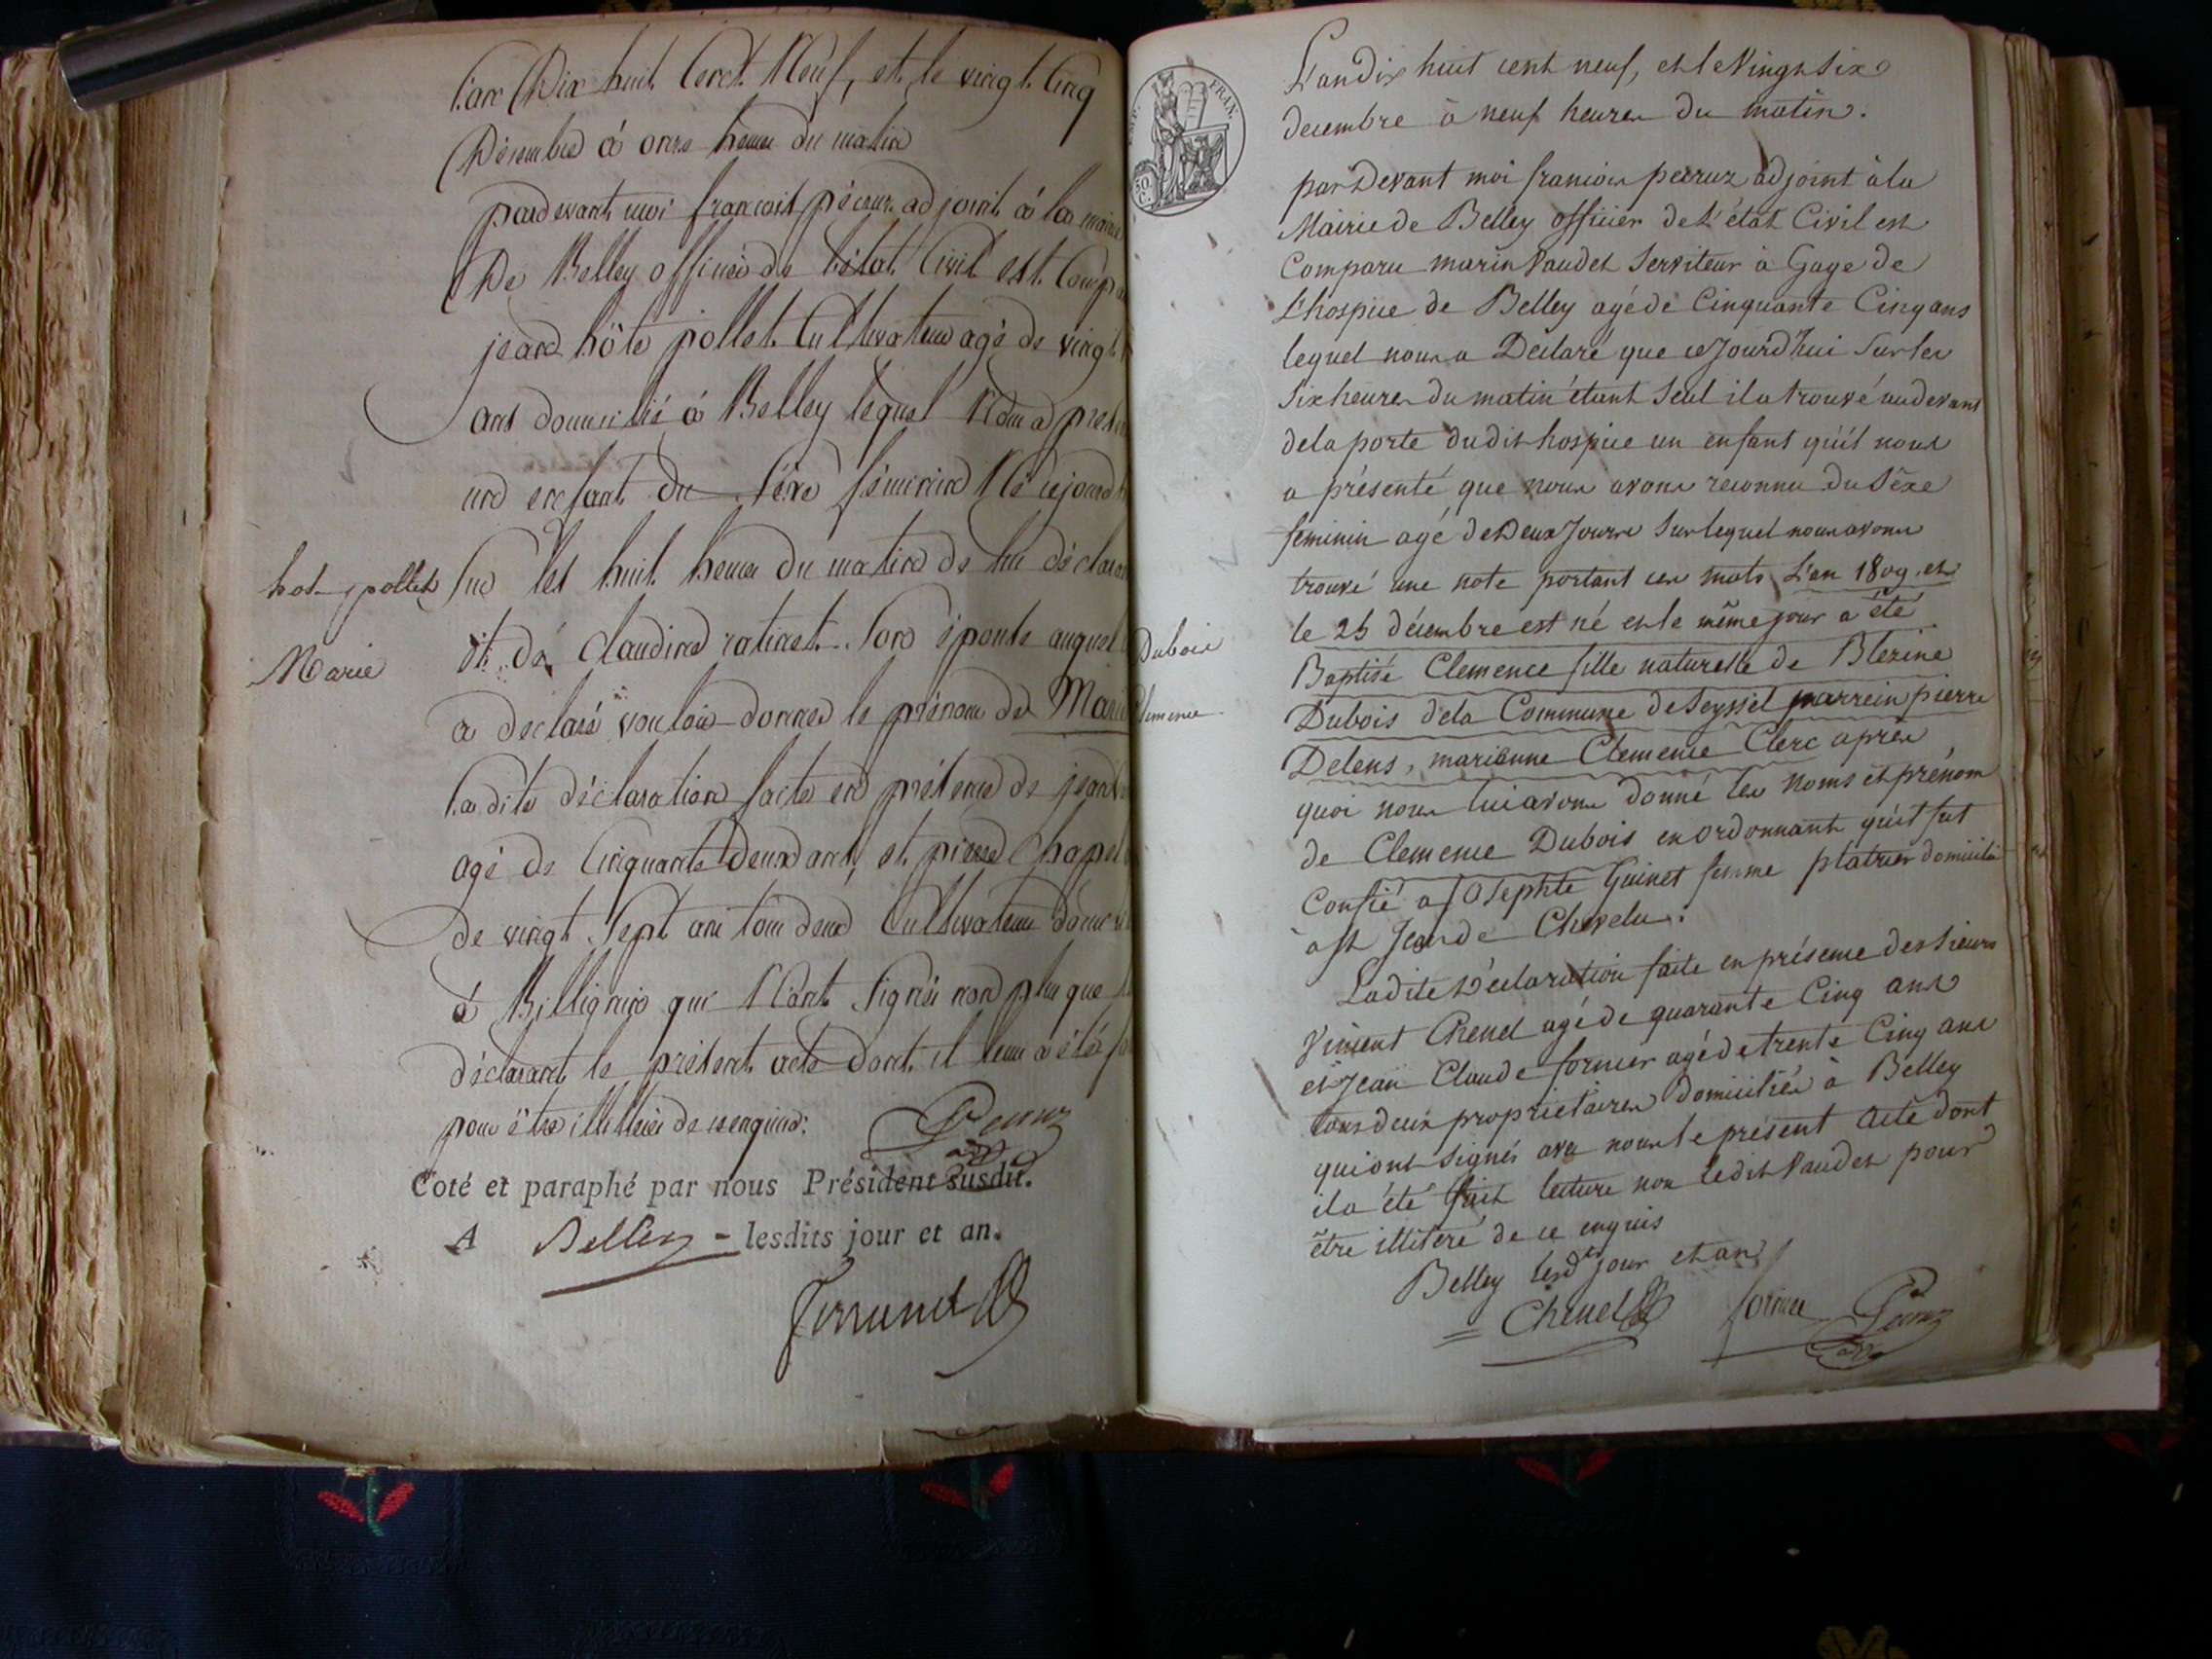 L'an Dix huit Cent Neuf, et le vingt Cinq
Décembre à onze heures du matin
pardevant moi françois pécruz adjoint à la mairie
De Belley officier de l'état Civil est Compa
jean hôte pollet Cultivateur agé de vingt
ans domicilié à Belley lequel Nous a présen
un enfant du Séxe féminin Né cejourd'h
Sur les huit heures du matin de lui déclarant
hot-pollet
et de Claudine ratinet Son épouse auquel
Marie
a déclaré vouloir donner le prénom de Marie
La dite déclaration faite en présence de jean
agé de Cinquante Deux ans, et pierre Chapel
de vingt Sept ans tous deux Cultivateurs domici
à Billignin qui N'ont Signés non plus que
déclarant le présent acte dont il leur a été f
pour être illitérés de ce enquis.
Pecruz
adj
Coté et paraphé par nous Président susdit.
A Belley - lesdits jour et an.
EMP. FRAN.
50 C.
L'an Dix huit cent neuf, et le Vingt Six
decembre à neuf heures du matin.
par Devant moi francois pecruz adjoint à la
Mairie de Belley officier de L'état Civil est
Comparu marin Vaudet Serviteur à Gage de
L'hospice de Belley agé de Cinquante Cinq ans
lequel nous a Déclaré que ce Jourd'hui Sur les
Six heures du matin étant Seul il a trouvé au devant
de la porte dudit hospice un enfant qu'il nous
a présenté que nous avons reconnu du Sêxe
feminin agé de Deux Jours Sur lequel nous avons
trouvé une note portant ces mots L'an 1809 et
le 25 décembre est né et le même jour a été
Dubois
Baptisé Clemence fille naturelle de Blezine
Clemence
Dubois de la Commune de Seyssel parrein pierre
Delens, marianne Clemence Clerc après
quoi nous lui avons donné les Noms et prénom
de Clemence Dubois en ordonnant qu'il fut
Confié a Josephte Guinet femme platrier domicilié
a St Jean de Chevelu.
Ladite Déclaration faite en présence des Sieurs
Vincent Chenel agé de quarante Cinq ans
et Jean Claude fornier agé de trente Cinq ans
tous deux propriétaires Domiciliés à Belley
qui ont Signés avec nous le présent Acte dont
il a été fait lecture non ledit Vaudet pour
être illitéré de ce enquis
Belley lesdts jour et an
Chenel fornier Pecruz
adj